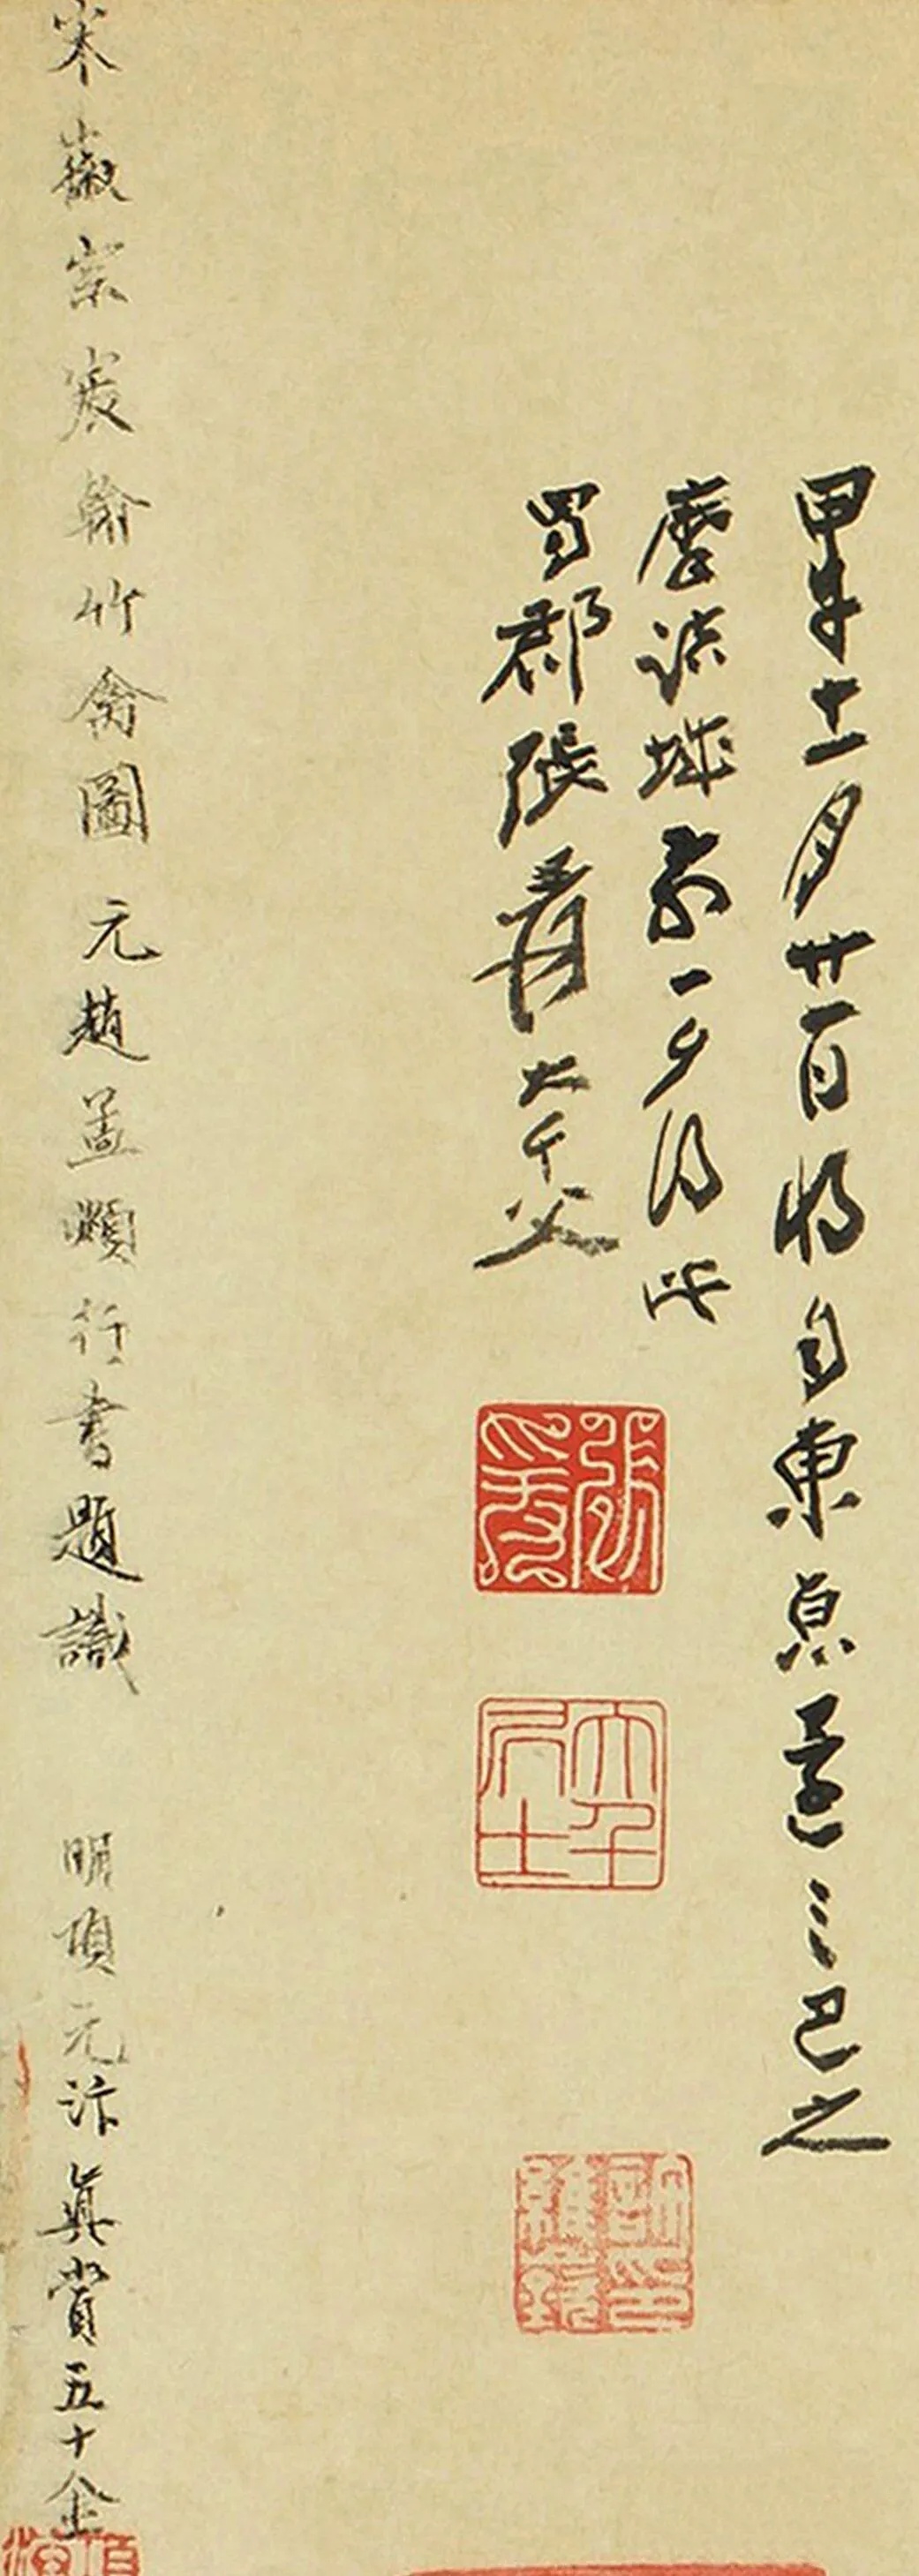 甲午十一月廿一日將自東亰還三巴之
摩詰城前一夕得此
蜀郡張爰大千父
大千居士
宋徽宗宸翰竹禽圖 元趙孟頫行書題識 明項元汴真賞五十金